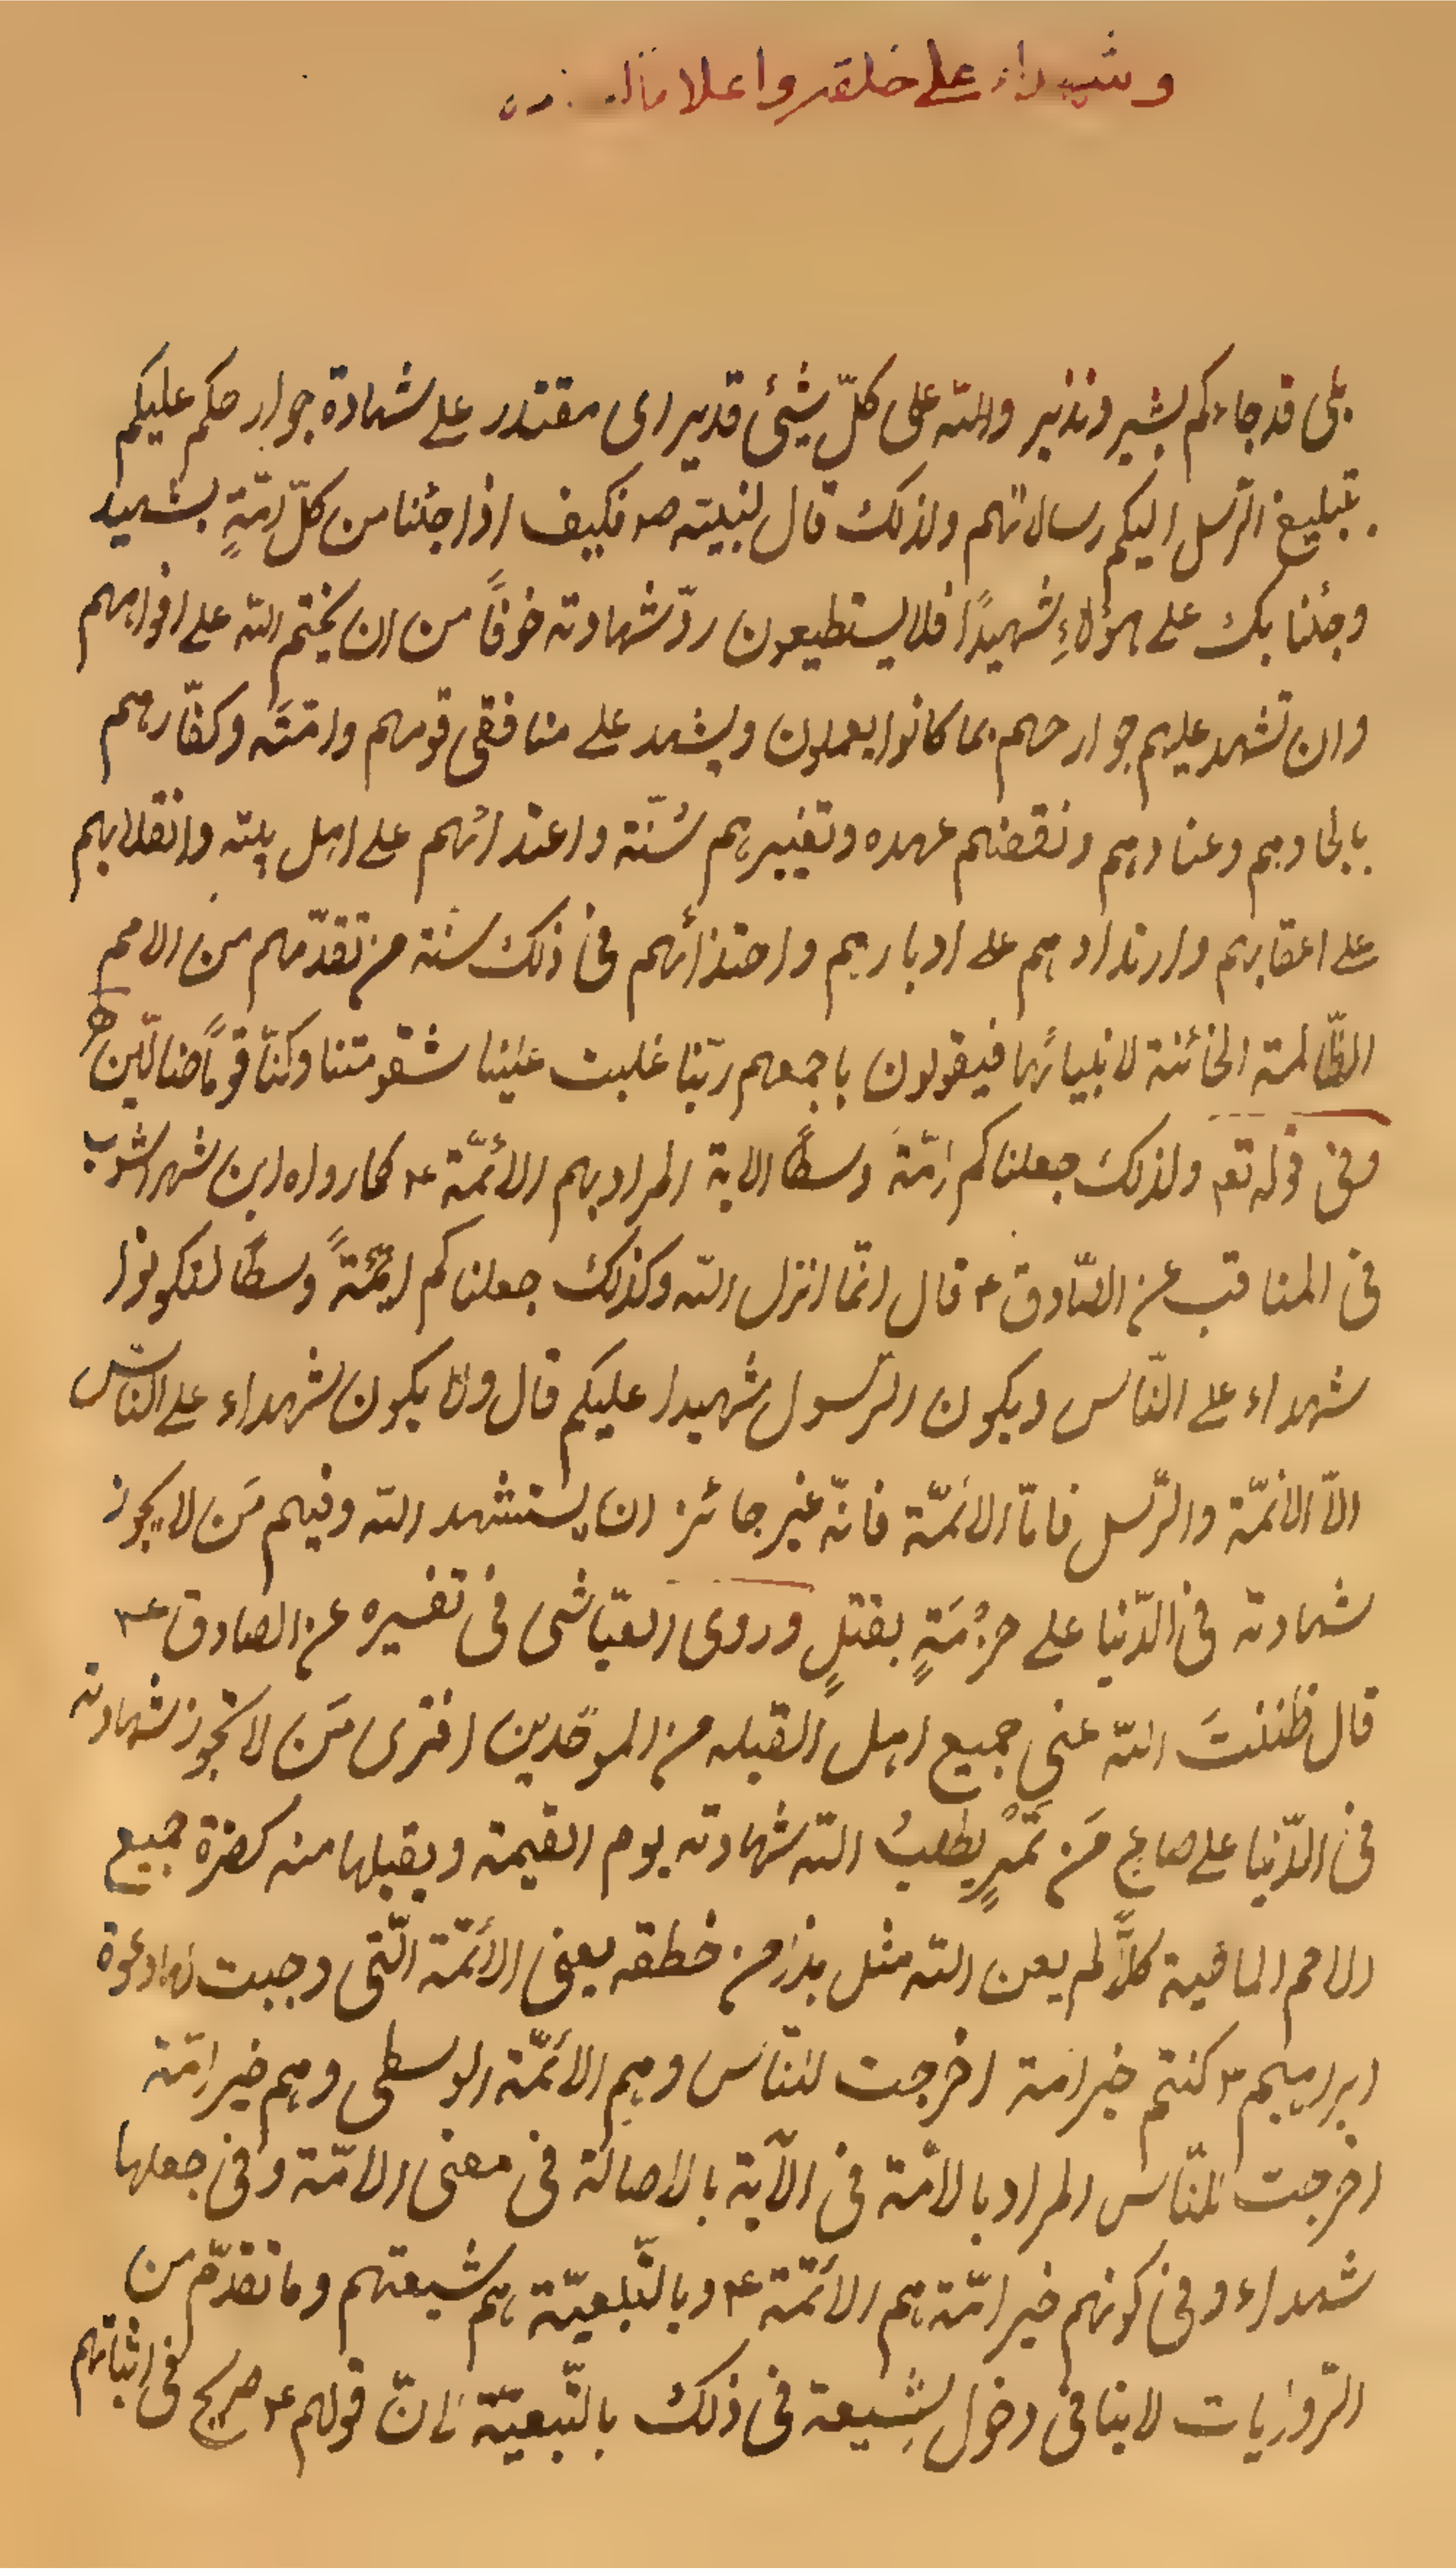 وشهداء على خلقه واعلاما
بلى قد جاءكم بشير ونذير والله على كلّ شيئ قدير اى مقتدر على شهادة جوارحكم عليكم
بتبليغ الرّسل اليكم رسالاتهم ولذلك قال لنبيّه ص فكيف اذا جئنا من كلّ امّةٍ بشهيد
وجئنا بك على هؤلاءِ شهيدًا فلا يستطيعون ردّ شهادته خوفًا من ان يختم الله على افواههم
وان تشهد عليهم جوارحهم بما كانوا يعملون ويشهد على منافقى قومهم وامّته وكفّارهم
بالحادهم وعنادهم ونقضهم عهده وتغييرهم سُنّته واعتدائهم على اهل بيته وانقلابهم
على اعقابهم وارتدادهم على ادبارهم واحتذائهم فى ذلك سنّة من تقدّمهم من الامم
الظّالمة الخائنة لانبيائها فيقولون باجمعهم ربّنا غلبت علينا شقوتنا وكنّا قومًا ضالّين
وفى قوله تع ولذلك جعلناكم امّة وسطًا الاية المراد بهم الأئمّة ع كما رواه ابن شهراشوب
فى المناقب عن الصّادق ع قال انّما انزل الله وكذلك جعلناكم ائمّةً وسطًا لتكونوا
شهداء على النّاس ويكون الرّسول شهيدا عليكم قال ولا يكون شهداء على النّاس
الّا الائمّة والرّسل فامّا الائمّة فانّه غير جائز ان يستشهد الله وفيهم مَن لا يجوز
شهادته فى الدّنيا على حزْمَةٍ بقتلٍ وروى العيّاشى فى تفسيره عن الصادق ع
قال ظننتَ الله عنى جميع اهل القبله من الموحّدين افترى مَن لا تجوز شهادته
فى الدّنيا على صاع مَن تمْرٍ يطلبُ الله شهادته يوم القيمة ويقبلها منه كضرة جميع
الامم الماضية كلّا لم يعن الله مثل هذا من خطقه يعنى الأئمّة الّتى وجبت لها دعوة
ابراهيم ع كنتم خير امة اخرجت للنّاس وهم الأئمّة الوسطى وهم خير امّة
اخرجت للنّاس المراد بالامّة فى الآية بالاصالة فى معنى الامّة وفى جعلها
شهداء وفى كونهم خير امّة هم الأئمّة ع وبالتّبعيّة هم شيعتهم وما تقدّم من
الرّوايات لا ينافى دخول الشّيعة فى ذلك بالتّبعيّة لانّ قولهم ع صريح فى اثباتهم